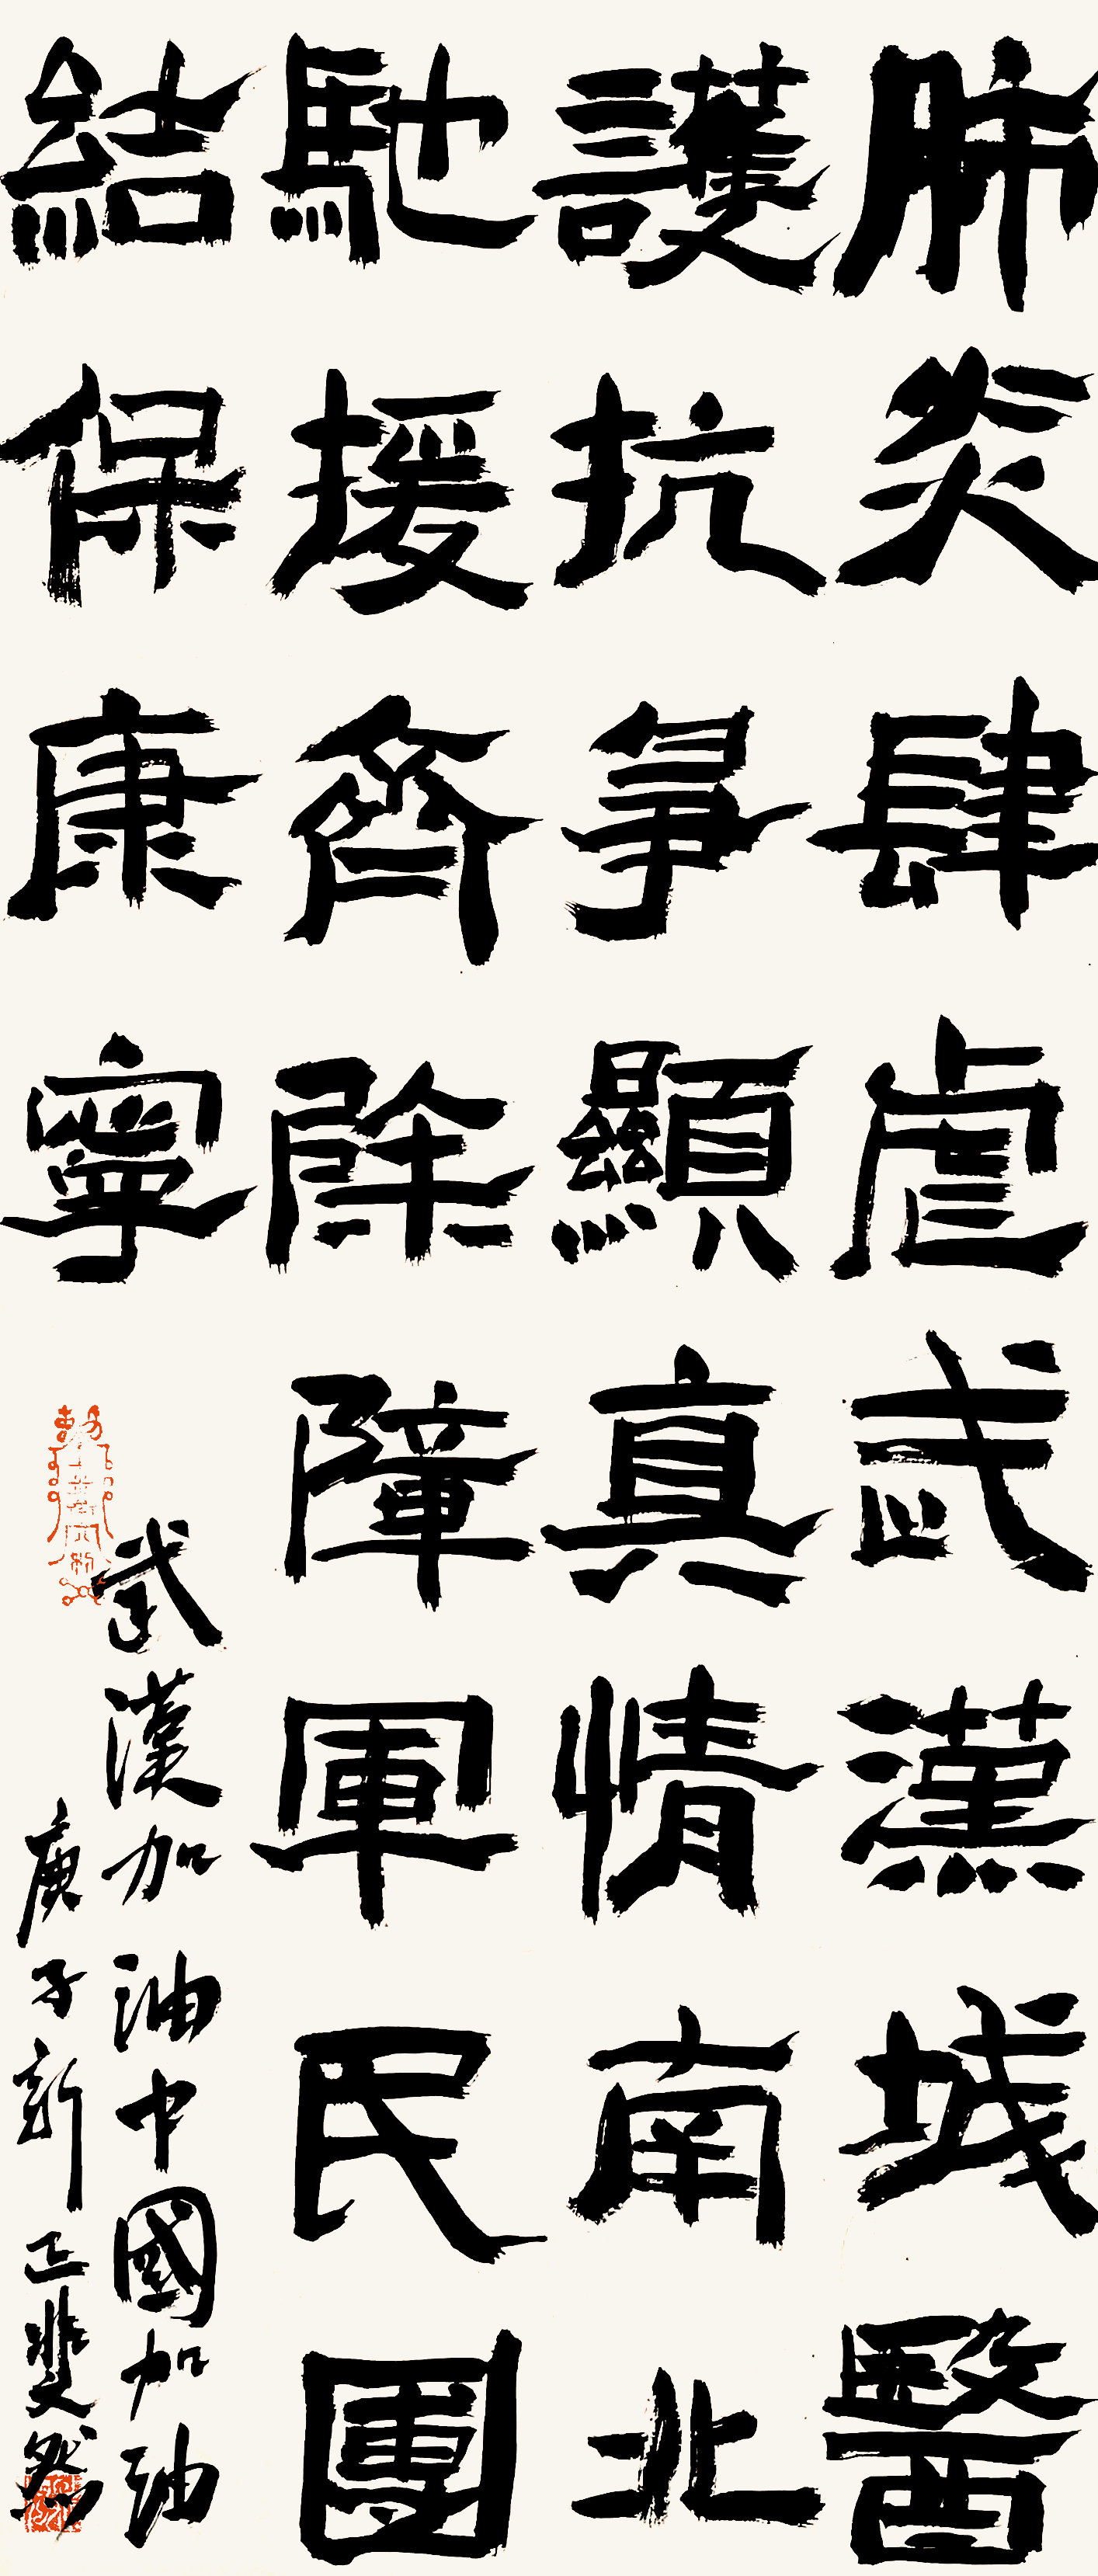 肺炎肆虐武漢城醫
護抗爭顯真情南北
馳援齊除障軍民團
結保康寧
武漢加油中國加油
庚子新正斐然